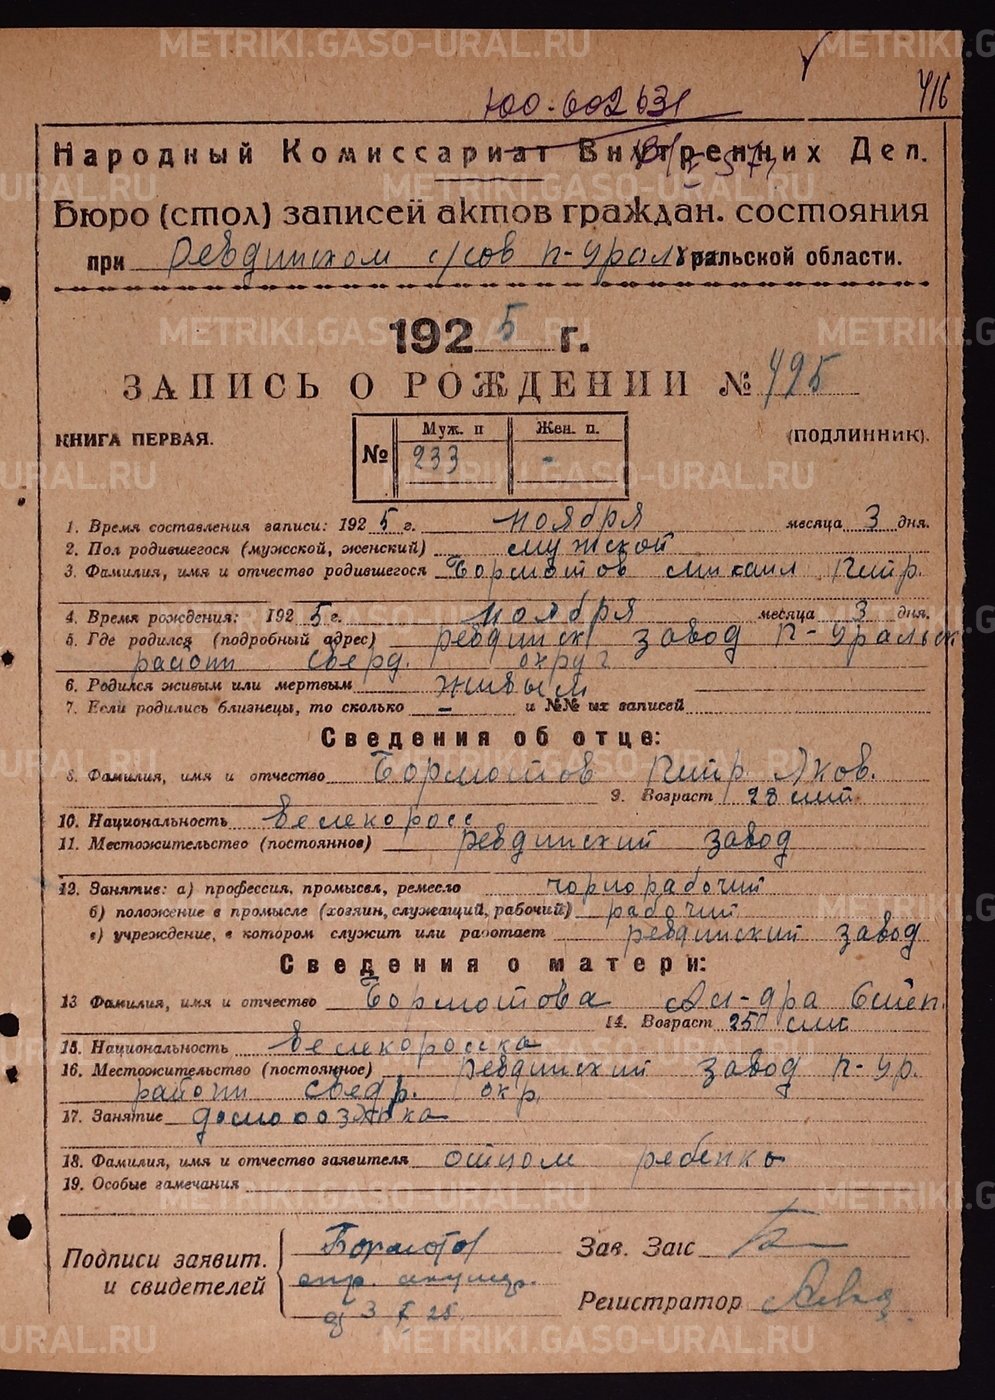 416
Ю0-602631
Народный Комиссариат Внутренних Дел.
Бюро (стол) записей актов граждан. состояния
при Ревдинском с/сов п-урал Уральской области.
1925 г.
ЗАПИСЬ О РОЖДЕНИИ № 495
КНИГА ПЕРВАЯ.
№ Муж. п Жен. п.
233 -
(ПОДЛИННИК).
1. Время составления записи: 1925 г. ноября месяца 3 дня.
2. Пол родившегося (мужской, женский) мужской
3. Фамилия, имя и отчество родившегося Бормотов Михаил Петр.
4. Время рождения: 1925 г. ноября месяца 3 дня.
5. Где родился (подробный адрес) Ревдинск завод п-уральск
район сверд. округ
6. Родился живым или мертвым живым
7. Если родились близнецы, то сколько - и №№ их записей
Сведения об отце:
8. Фамилия, имя и отчество Бормотов Петр Яков.
9. Возраст 28 лет.
10. Национальность великоросс
11. Местожительство (постоянное) Ревдинский завод
12. Занятие: а) профессия, промысел, ремесло чорнорабочий
б) положение в промысле (хозяин, служащий, рабочий) рабочий
в) учреждение, в котором служит или работает Ревдинский завод
Сведения о матери:
13 Фамилия, имя и отчество Бормотова Ал-дра Степ.
14. Возраст 25 лет
15. Национальность великоросска
16. Местожительство (постоянное) Ревдинский завод п-ур.
район сведр. окр.
17. Занятие домохозяйка
18. Фамилия, имя и отчество заявителя отцом ребенка
19. Особые замечания
Подписи заявит. Бормотов
и свидетелей спр. акушер.
3 25
Зав. Загс
Регистратор
METRIKI.GASO-URAL.RU